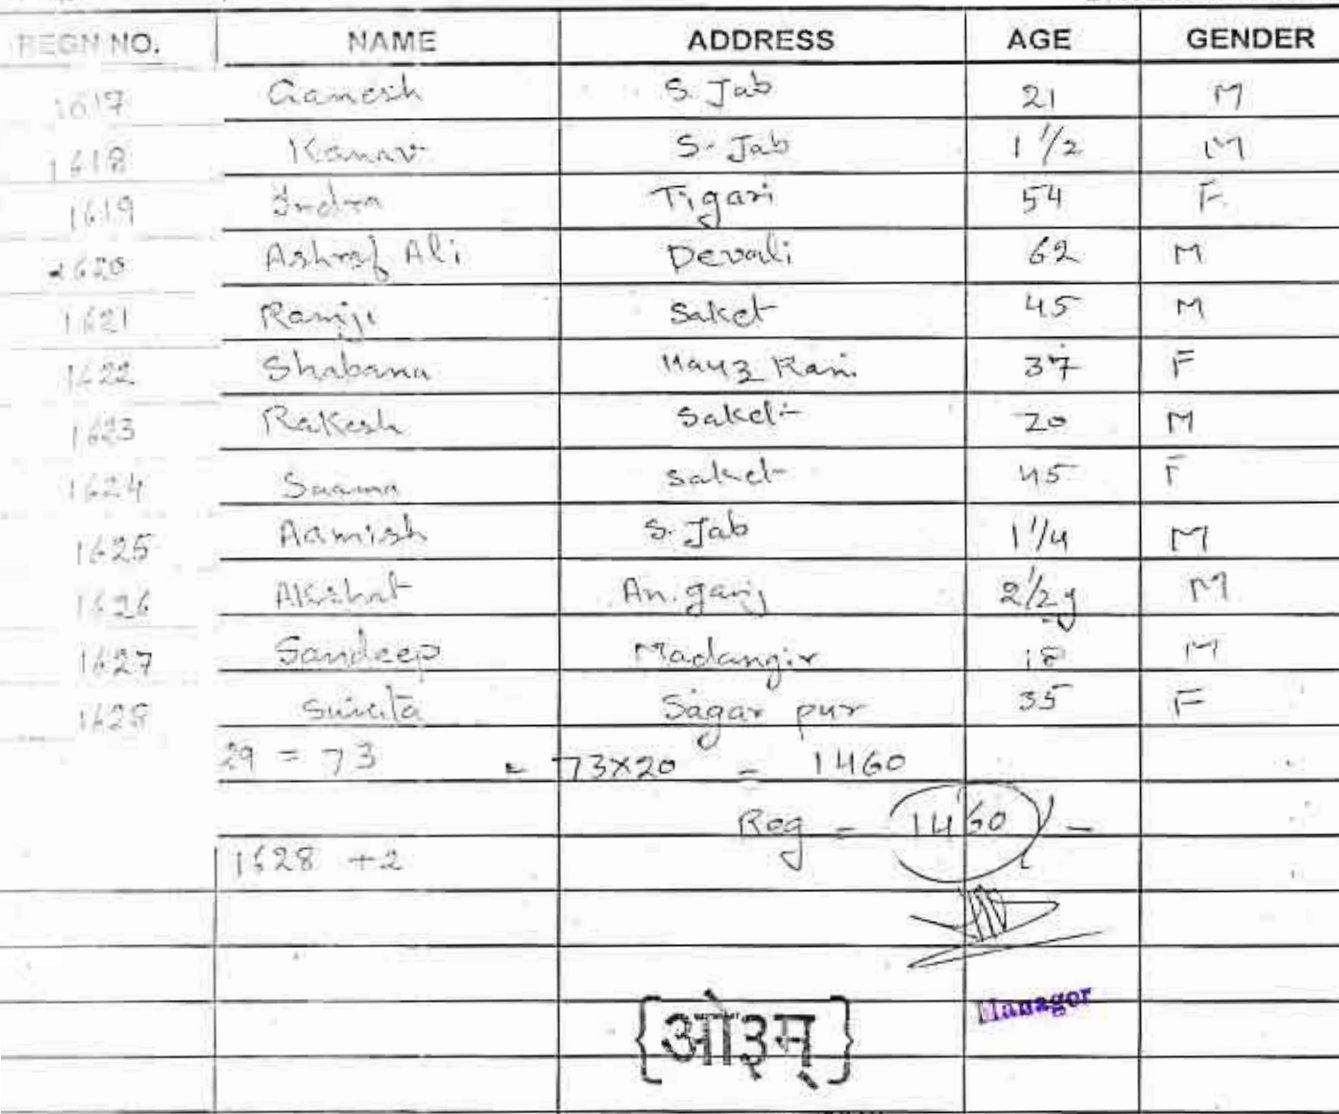 REGN NO. NAME ADDRESS AGE GENDER
1617 Ganesh S. Jab 21 M
1618 Kanav S. Jab 1 1/2 M
1619 Indra Tigari 54 F
1620 Ashraf Ali Devali 62 M
1621 Ramji Saket 45 M
1622 Shabana Hauz Rani 37 F
1623 Rakesh Saket 20 M
1624 Saket 45 F
1625 Aamish S. Jab 1 1/4 M
1626 Akshat An. ganj 2 1/2 y M
1627 Sandeep Madangir 18 M
1628 Sunita Sagar pur 35 F
29 = 73 = 73x20 = 1460
Reg = 1460/-
1628 +2
Manager
{ओ३म्}